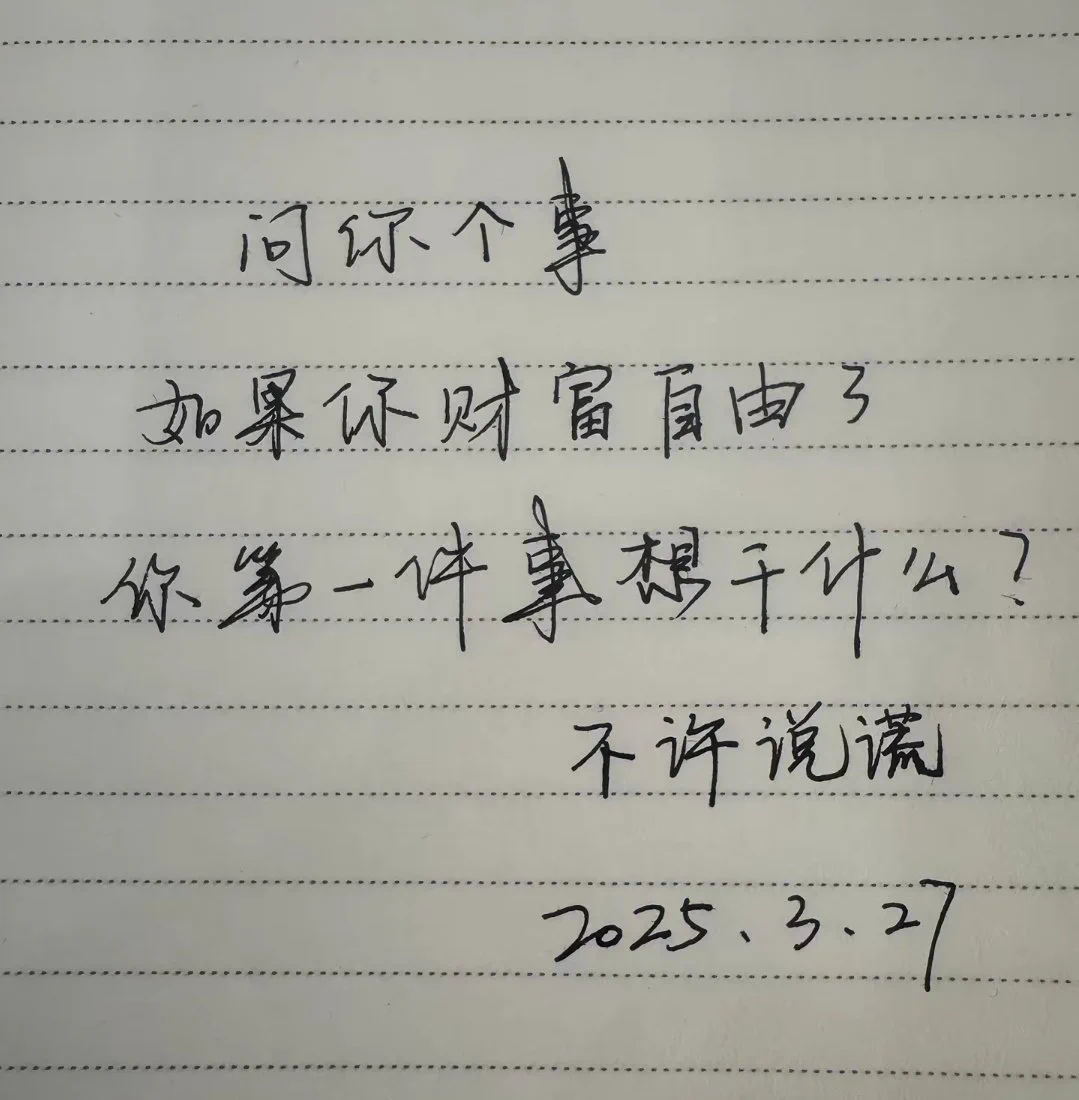 问你个事
如果你财富自由了
你第一件事想干什么?
不许说谎
2025.3.27